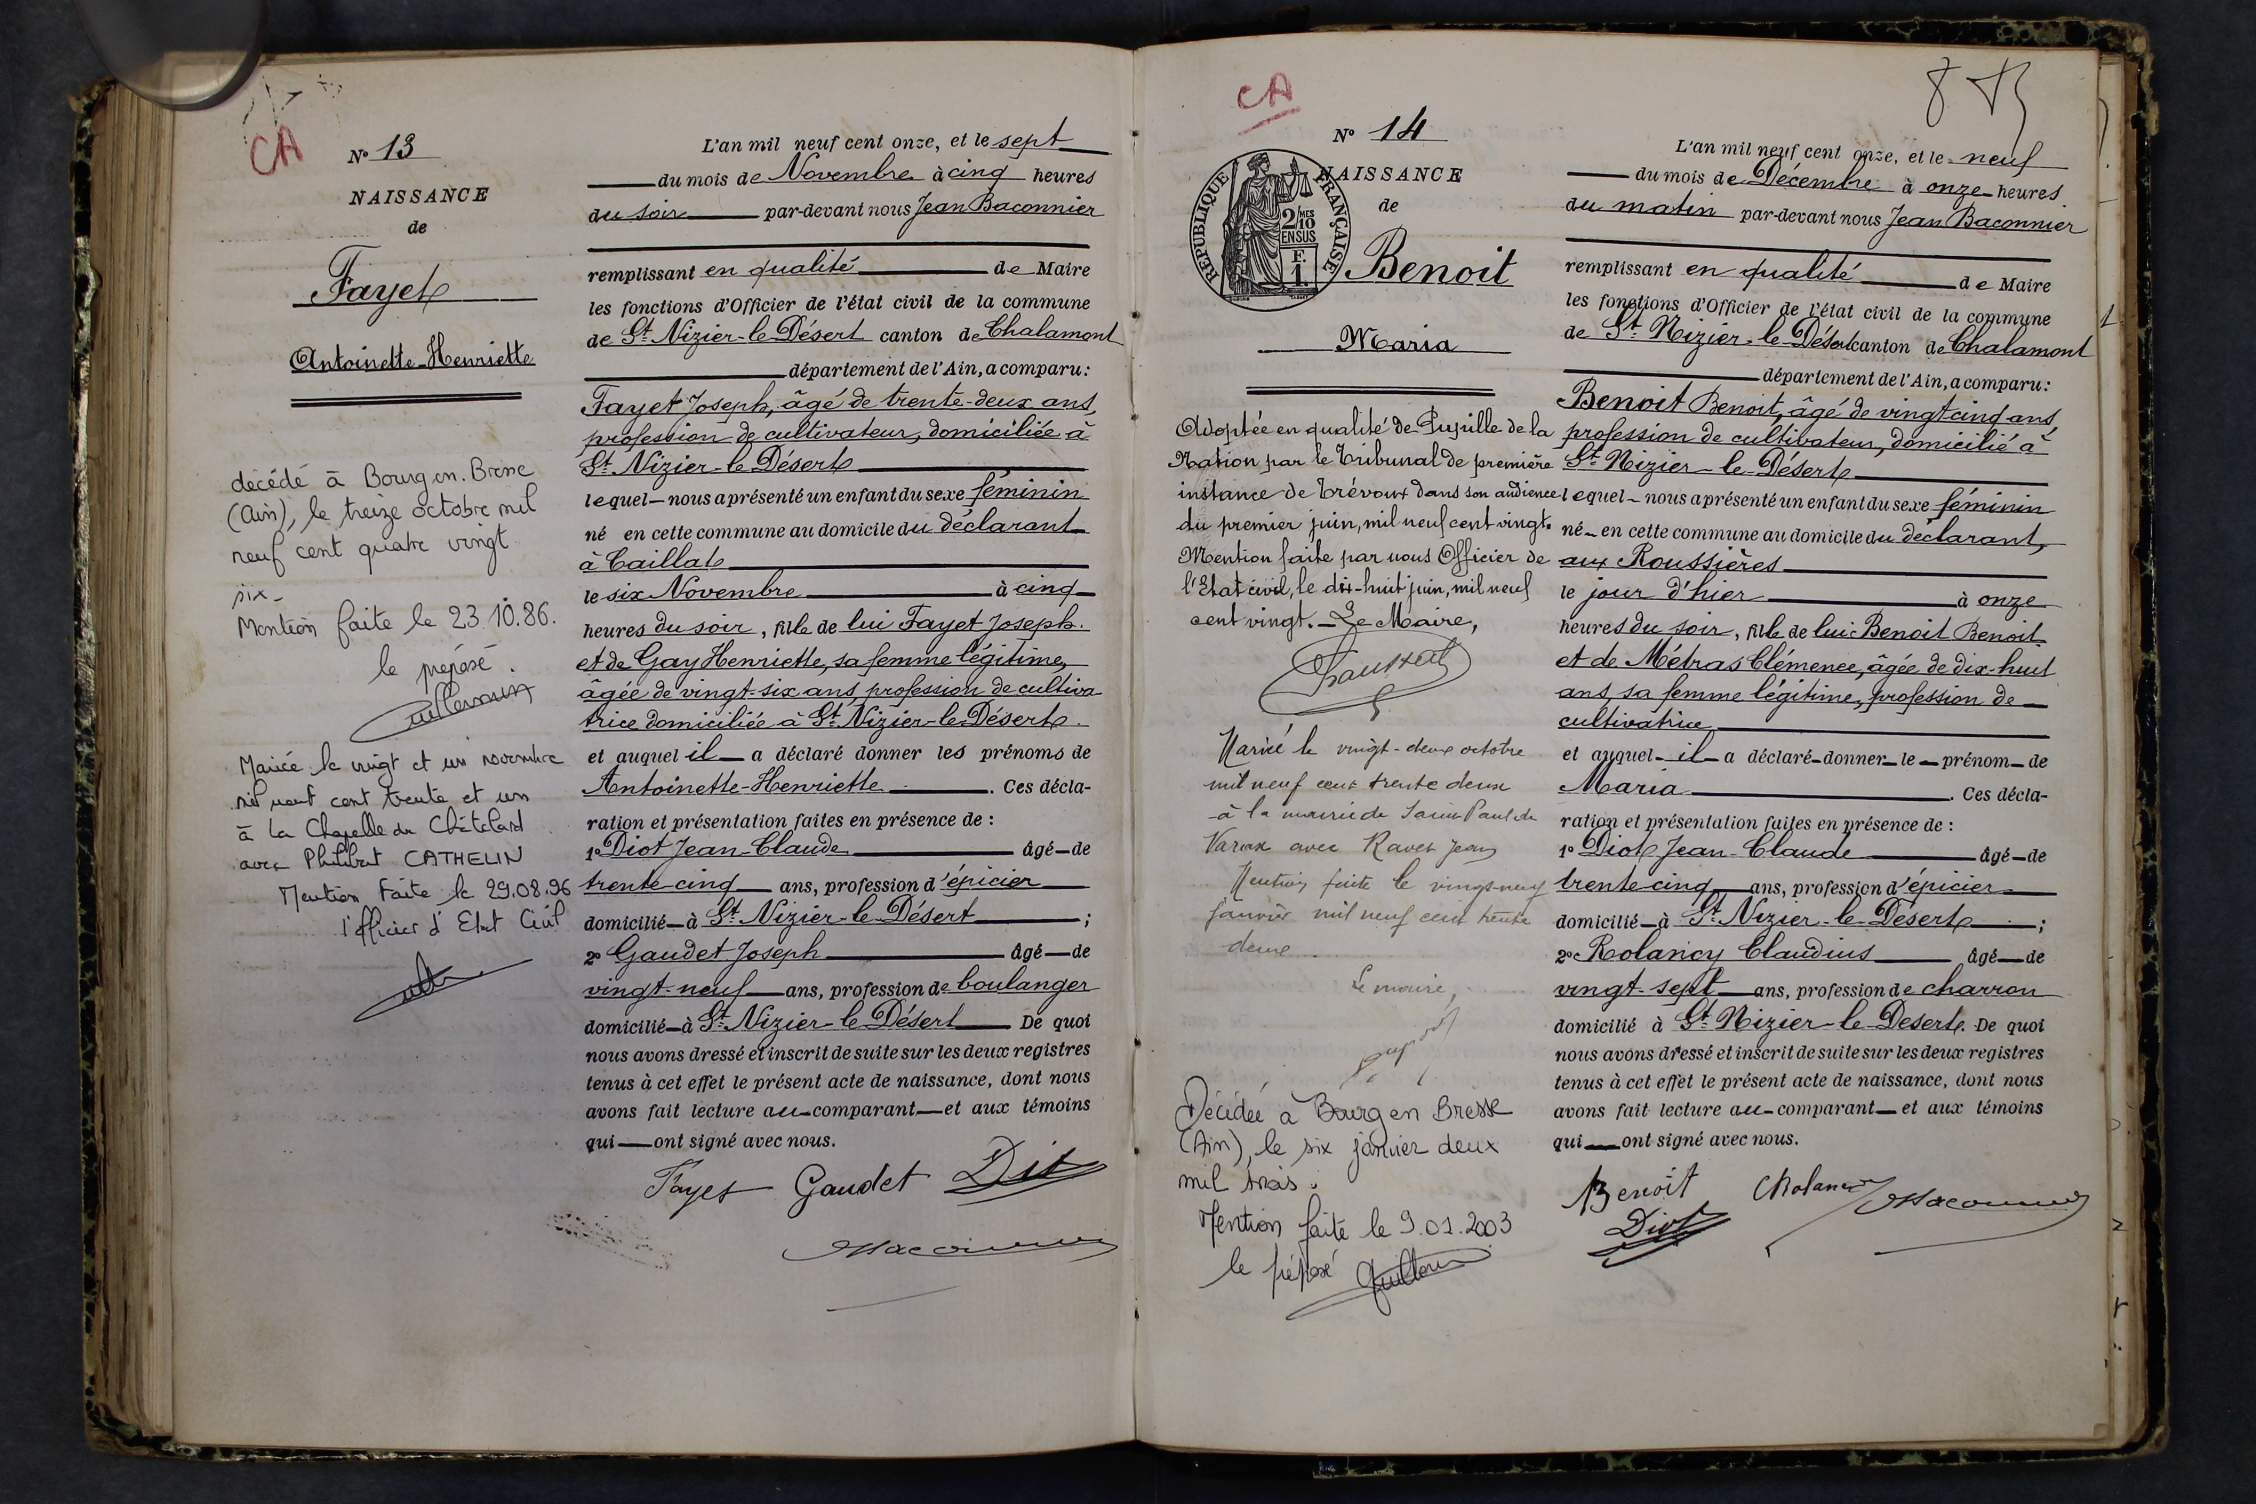 CA
N° 13
NAISSANCE
de
Fayet
Antoinette-Henriette
décédé à Bourg en Bresse
(Ain), le treize octobre mil
neuf cent quatre vingt
six-
Mention faite le 23.10.86.
le préposé.
Mariée le vingt et un novembre
mil neuf cent trente et un
à La Chapelle du Châtelard
avec Philibert CATHELIN
Mention faite le 29.08.96
l'officier d'Etat Civil
L'an mil neuf cent onze, et le sept
du mois de Novembre à cinq heures
du soir par-devant nous Jean Baconnier
remplissant en qualité de Maire
les fonctions d'Officier de l'état civil de la commune
de St Nizier-le-Désert canton de Chalamont
département de l'Ain, a comparu:
Fayet Joseph, âgé de trente-deux ans,
profession de cultivateur, domiciliée à
St Nizier-le-Désert
lequel nous a présenté un enfant du sexe féminin
né en cette commune au domicile du déclarant
à Caillat
le six Novembre à cinq
heures du soir, fille de lui Fayet Joseph.
et de Gay Henriette, sa femme légitime,
âgée de vingt-six ans, profession de cultiva-
trice domiciliée à St Nizier-le-Désert.
et auquel il a déclaré donner les prénoms de
Antoinette-Henriette. Ces décla-
ration et présentation faites en présence de :
1° Diot Jean-Claude âgé de
trente-cinq ans, profession d'épicier
domicilié à St Nizier-le-Désert ;
2° Gaudet Joseph âgé de
vingt-neuf ans, profession de boulanger
domicilié à St Nizier-le-Désert De quoi
nous avons dressé et inscrit de suite sur les deux registres
tenus à cet effet le présent acte de naissance, dont nous
avons fait lecture au comparant et aux témoins
qui ont signé avec nous.
Fayet Gaudet Diot
Baconnier
CA
N° 14
NAISSANCE
de
REPUBLIQUE FRANÇAISE
2/10 MES
EN SUS
F.
1.
Benoit
Maria
Adoptée en qualité de Pupille de la
Nation par le Tribunal de première
instance de Trévoux dans son audience
du premier juin, mil neuf cent vingt.
Mention faite par nous Officier de
l'Etat civil, le dix-huit juin, mil neuf
cent vingt. - Le Maire,
Marié le vingt-deux octobre
mil neuf cent trente deux
à la mairie de Saint Paul de
Varax avec Ravet Jean
Mention faite le vingt-neuf
janvier mil neuf cent trente
deux
Le maire,
Décédée à Bourg en Bresse
(Ain), le six janvier deux
mil trois.
Mention faite le 9.01.2003
le préposé
L'an mil neuf cent onze, et le neuf
du mois de Décembre à onze heures
du matin par-devant nous Jean Baconnier
remplissant en qualité de Maire
les fonctions d'Officier de l'état civil de la commune
de St Nizier-le-Désert canton de Chalamont
département de l'Ain, a comparu:
Benoit Benoit, âgé de vingt cinq ans,
profession de cultivateur, domicilié à
St Nizier-le-Désert
lequel nous a présenté un enfant du sexe féminin
né en cette commune au domicile du déclarant,
aux Roussières
le jour d'hier à onze
heures du soir, fille de lui Benoit Benoit
et de Métras Clémence, âgée de dix-huit
ans, sa femme légitime, profession de
cultivatrice
et auquel il a déclaré donner le prénom de
Maria. Ces décla-
ration et présentation faites en présence de :
1° Diot Jean-Claude âgé de
trente cinq ans, profession d'épicier
domicilié à St Nizier-le-Désert ;
2° Rolancy Claudius âgé de
vingt-sept ans, profession de charron
domicilié à St Nizier-le-Desert. De quoi
nous avons dressé et inscrit de suite sur les deux registres
tenus à cet effet le présent acte de naissance, dont nous
avons fait lecture au comparant et aux témoins
qui ont signé avec nous.
Benoit CRolancy Baconnier
Diot